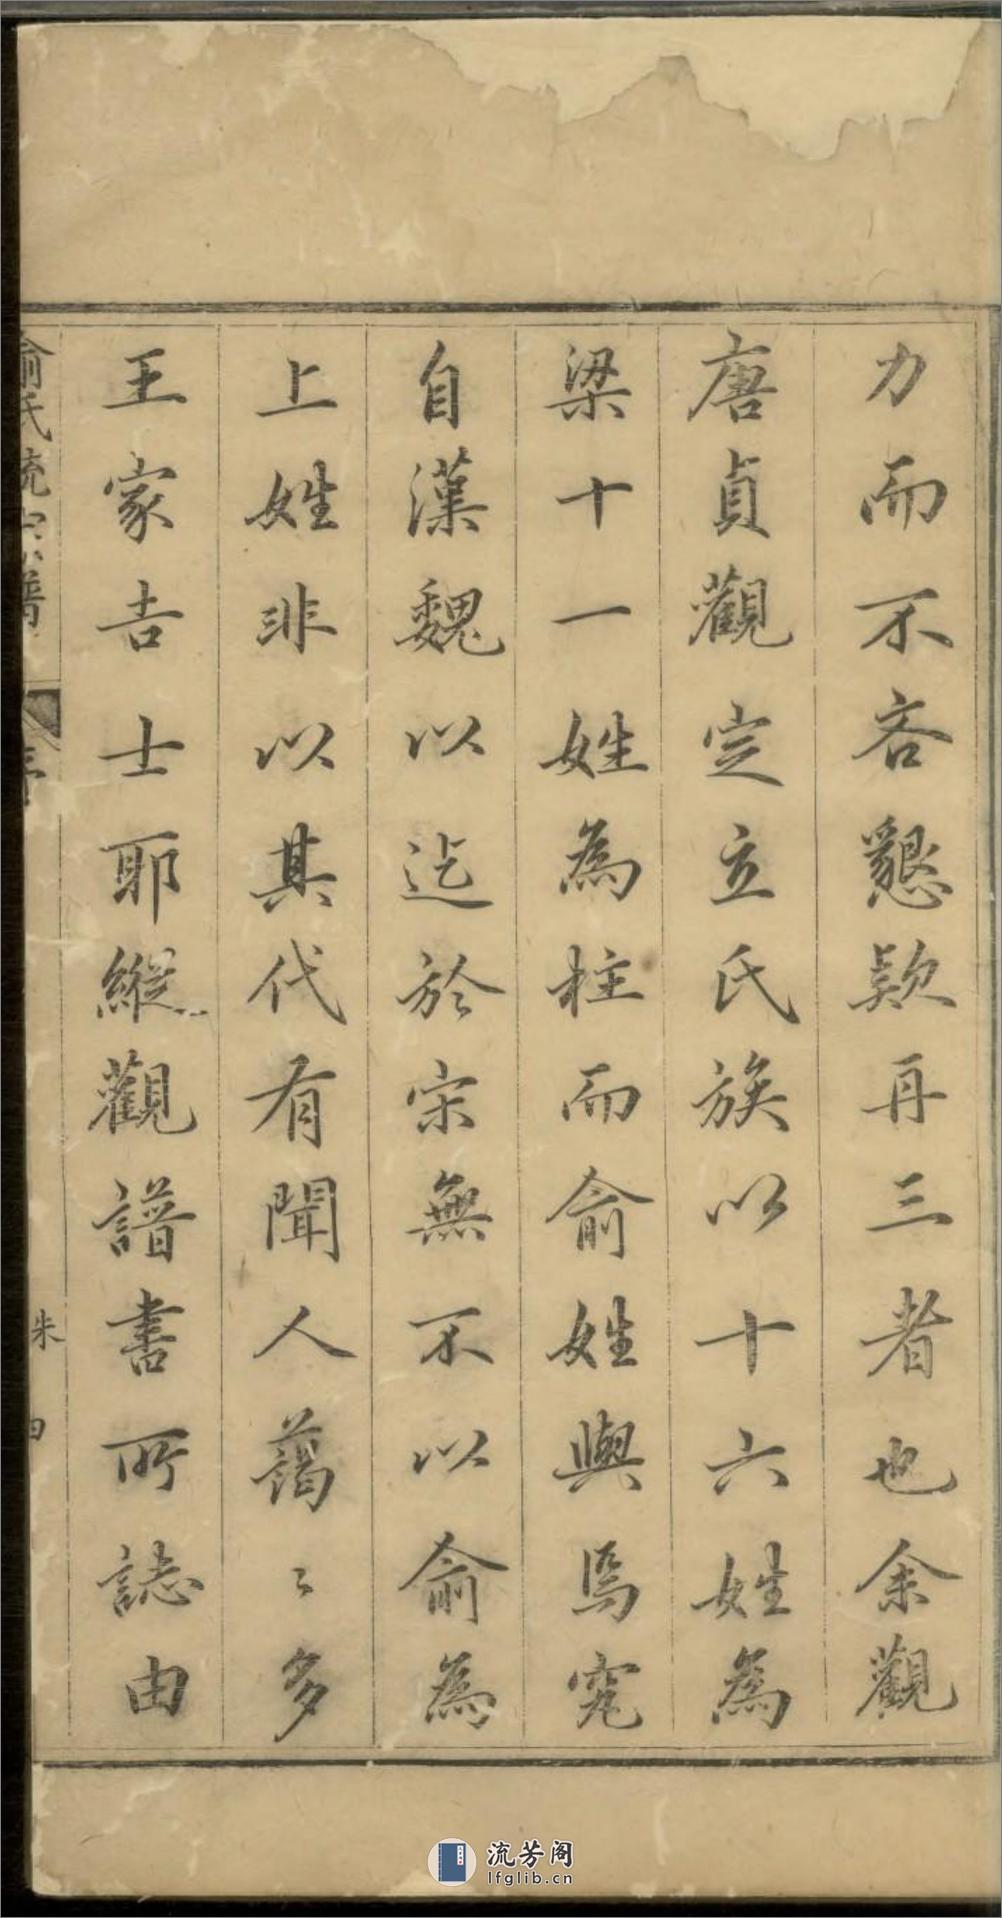 力而不吝懇欵再三者也余觀
唐貞觀定立氏族以十六姓為
梁十一姓為柱而俞姓與焉究
自漢魏以迄於宋無不以俞為
上姓非以其代有聞人藹〻多
王家吉士耶縱觀譜書所誌由
俞氏統宗譜
朱
四
流芳阁
lfglib.cn